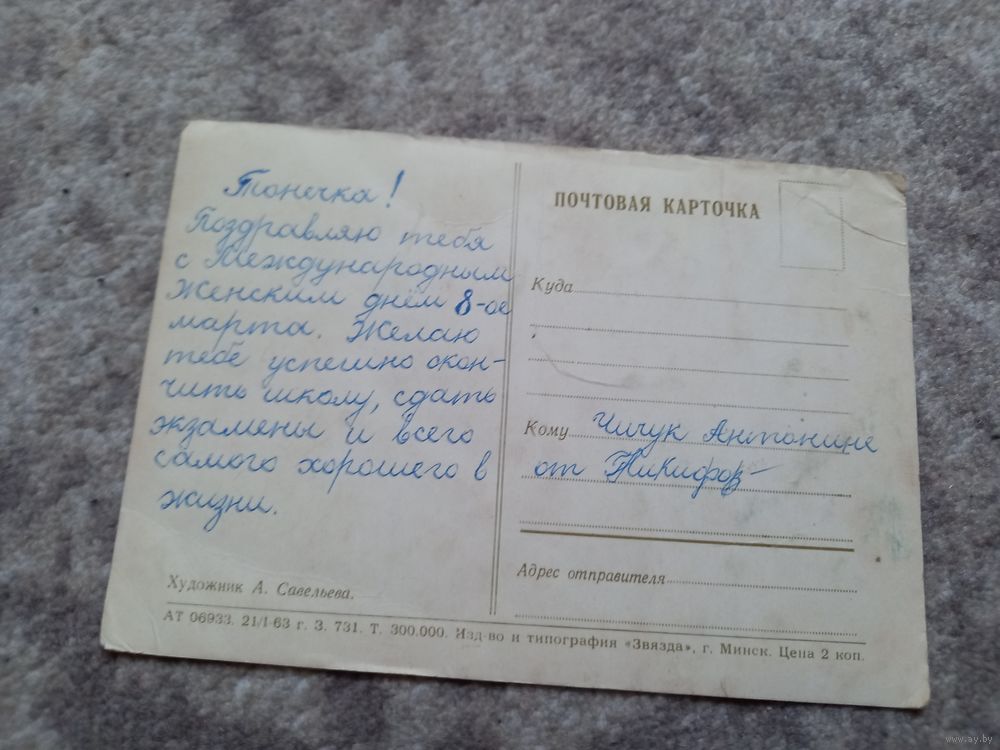 Тонечка!
Поздравляю тебя
с Международным
женским днём 8-ое
марта. Желаю
тебе успешно окон-
чить школу, сдать
экзамены и всего
самого хорошего в
жизни.
Художник А. Савельева.
АТ 06933. 21/I-63 г. З. 731. Т. 300.000. Изд-во и типография «Звязда», г. Минск. Цена 2 коп.
ПОЧТОВАЯ КАРТОЧКА
Куда
Кому Чичук Антонине
от
Адрес отправителя
www.ay.by